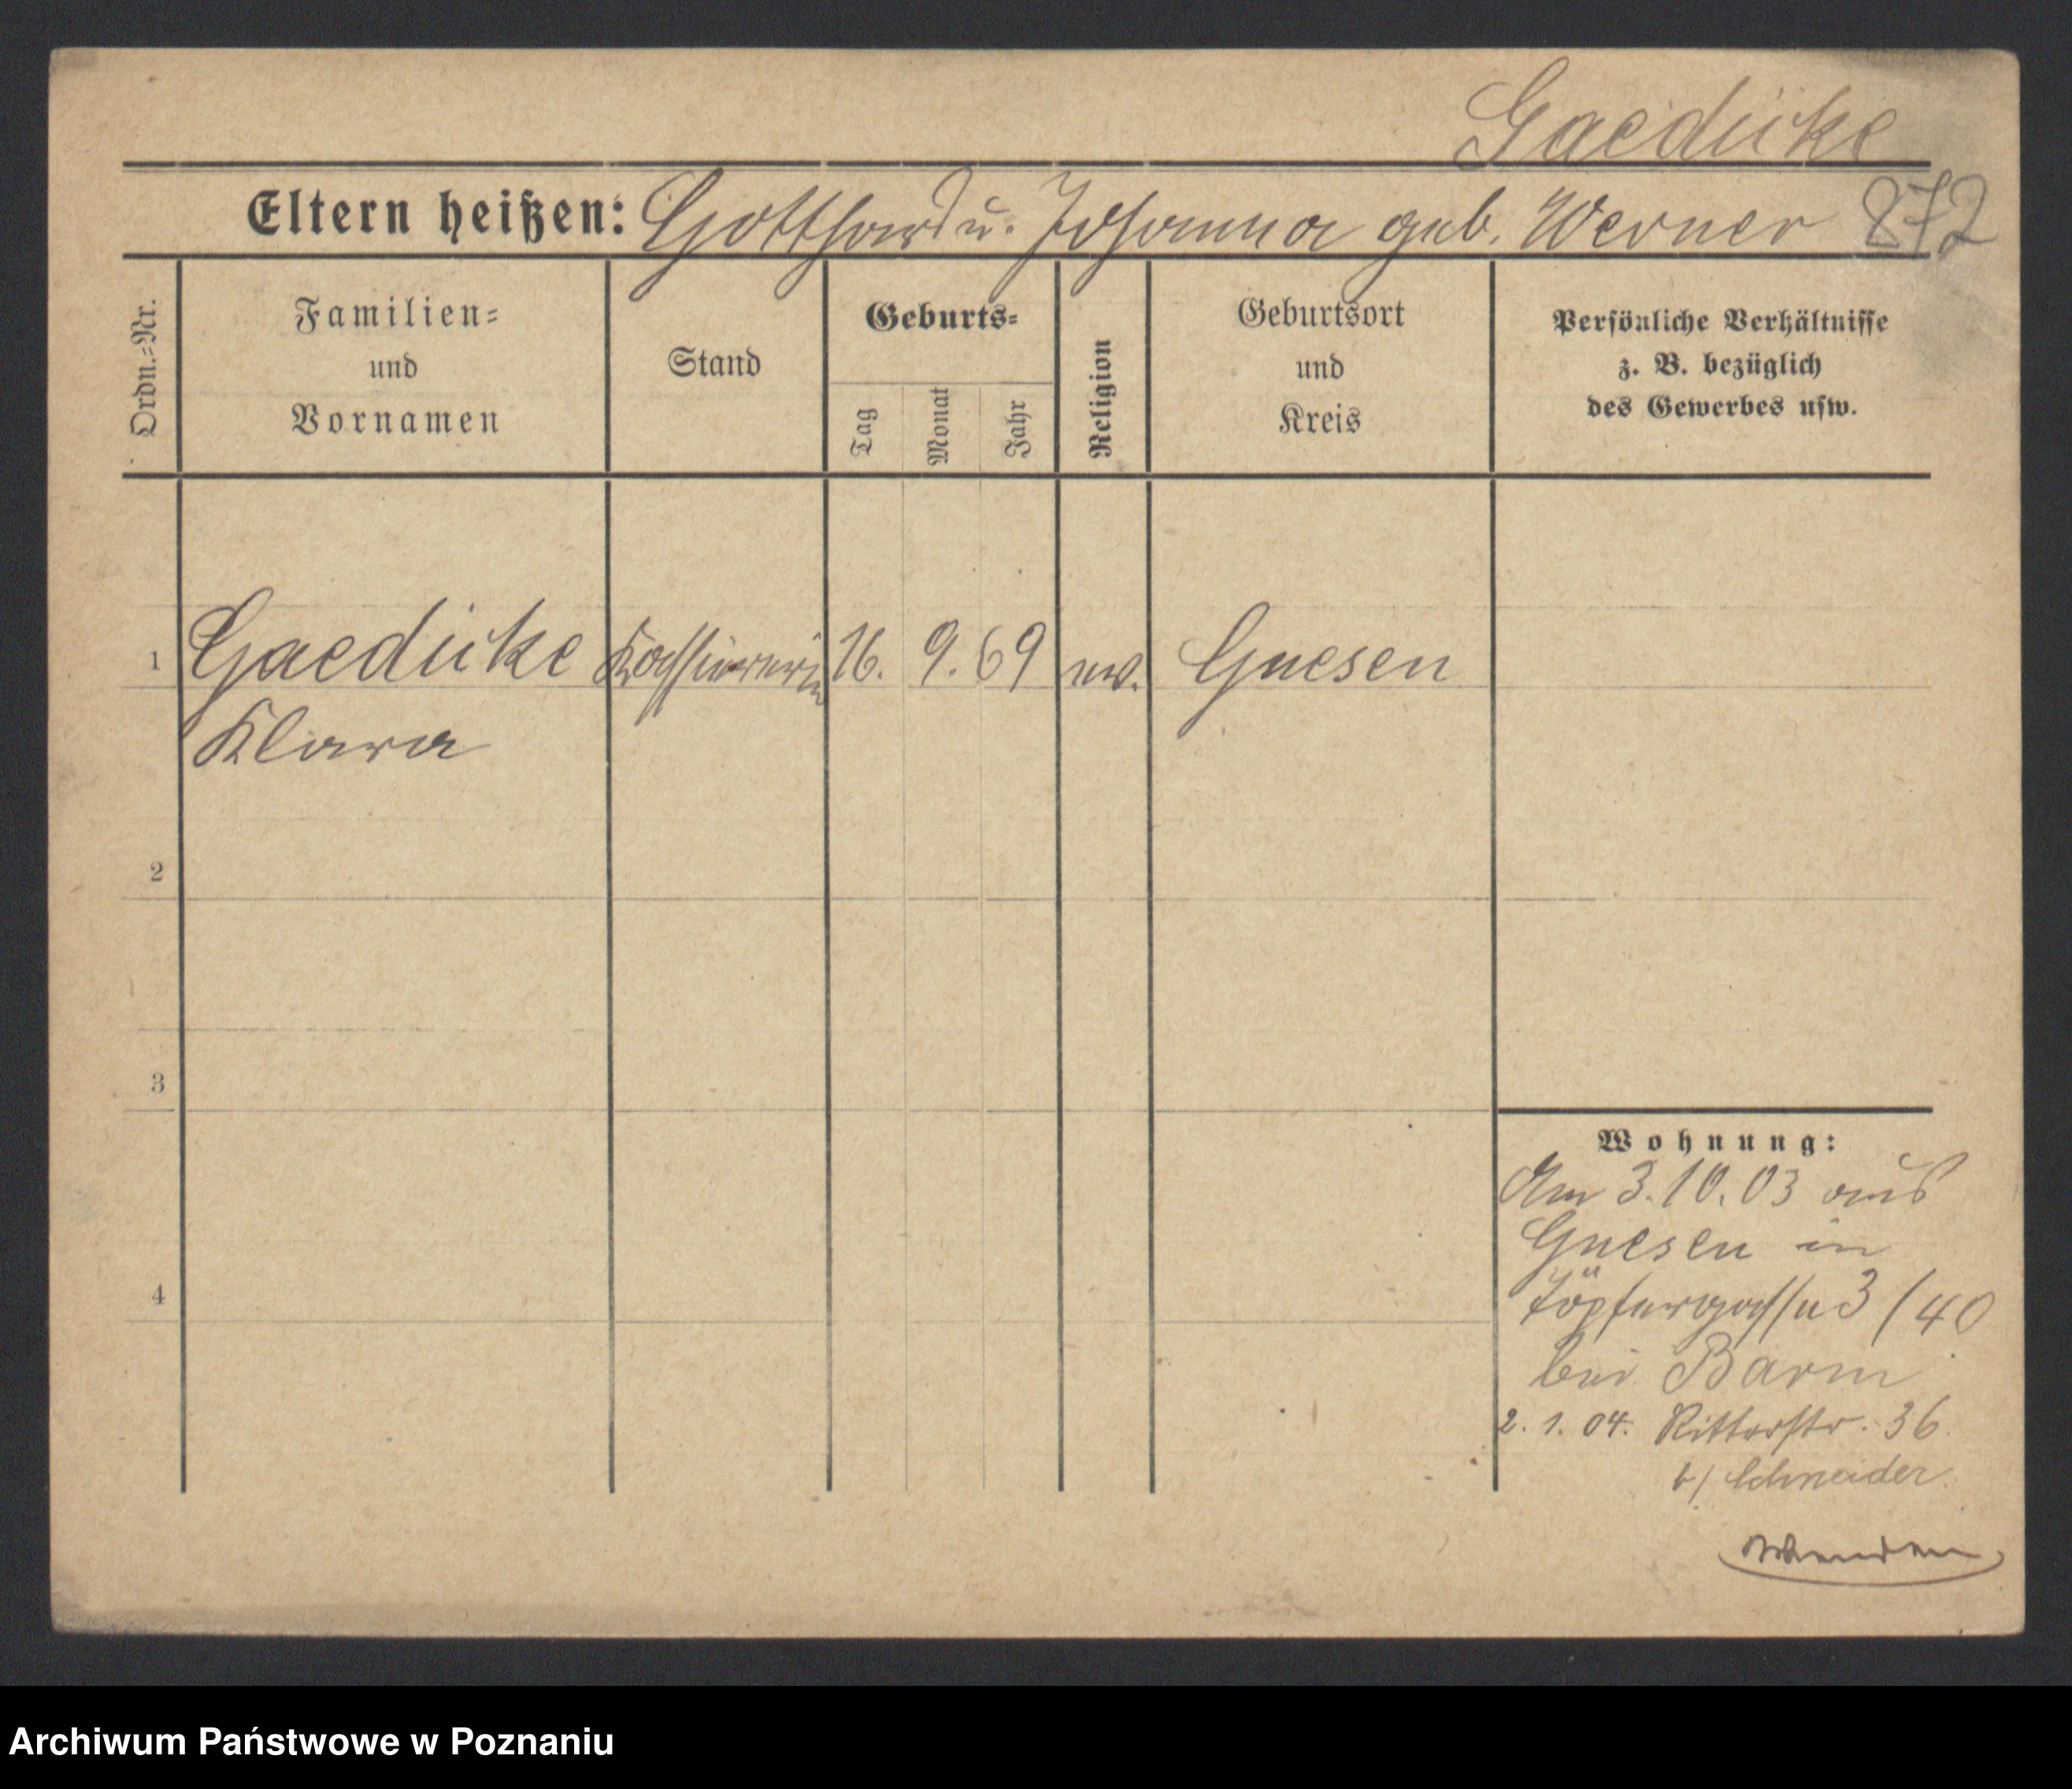 Gaedicke
Eltern heißen: Gotthard u. Johanna geb. Werner 872
Ordn.-Nr.
Familien-
und
Vornamen
Stand
Geburts-
Tag
Monat
Jahr
Religion
Geburtsort
und
Kreis
Persönliche Verhältnisse
z. B. bezüglich
des Gewerbes usw.
1 Gaedicke Kassiererin 16. 9. 69 ev. Gnesen
Klara
2
3
4
Wohnung:
Am 3.10.03 aus
Gnesen in
Töpfergasse 3/40
bei Barm
2. 1. 04. Ritterstr. 36
b/ Schneider
Archiwum Państwowe w Poznaniu